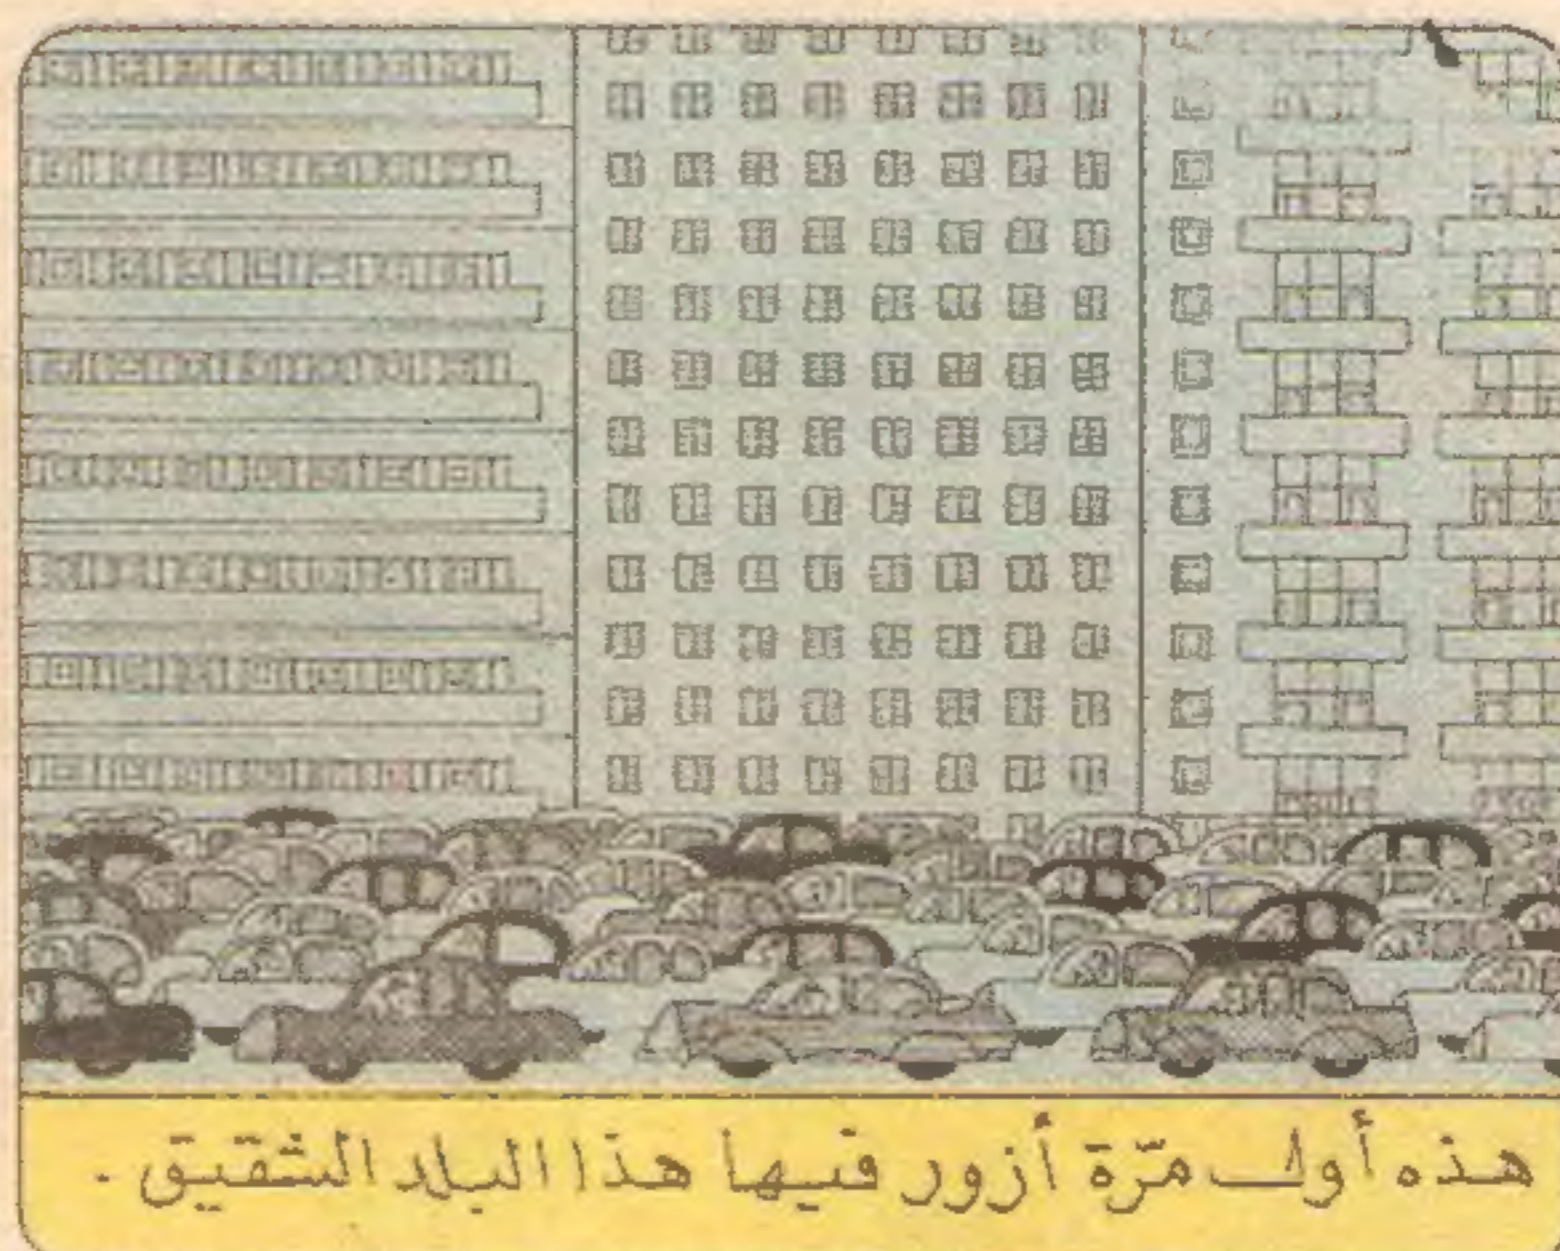 هذه أول مرّة أزور فيها هذا البلد الشقيق .